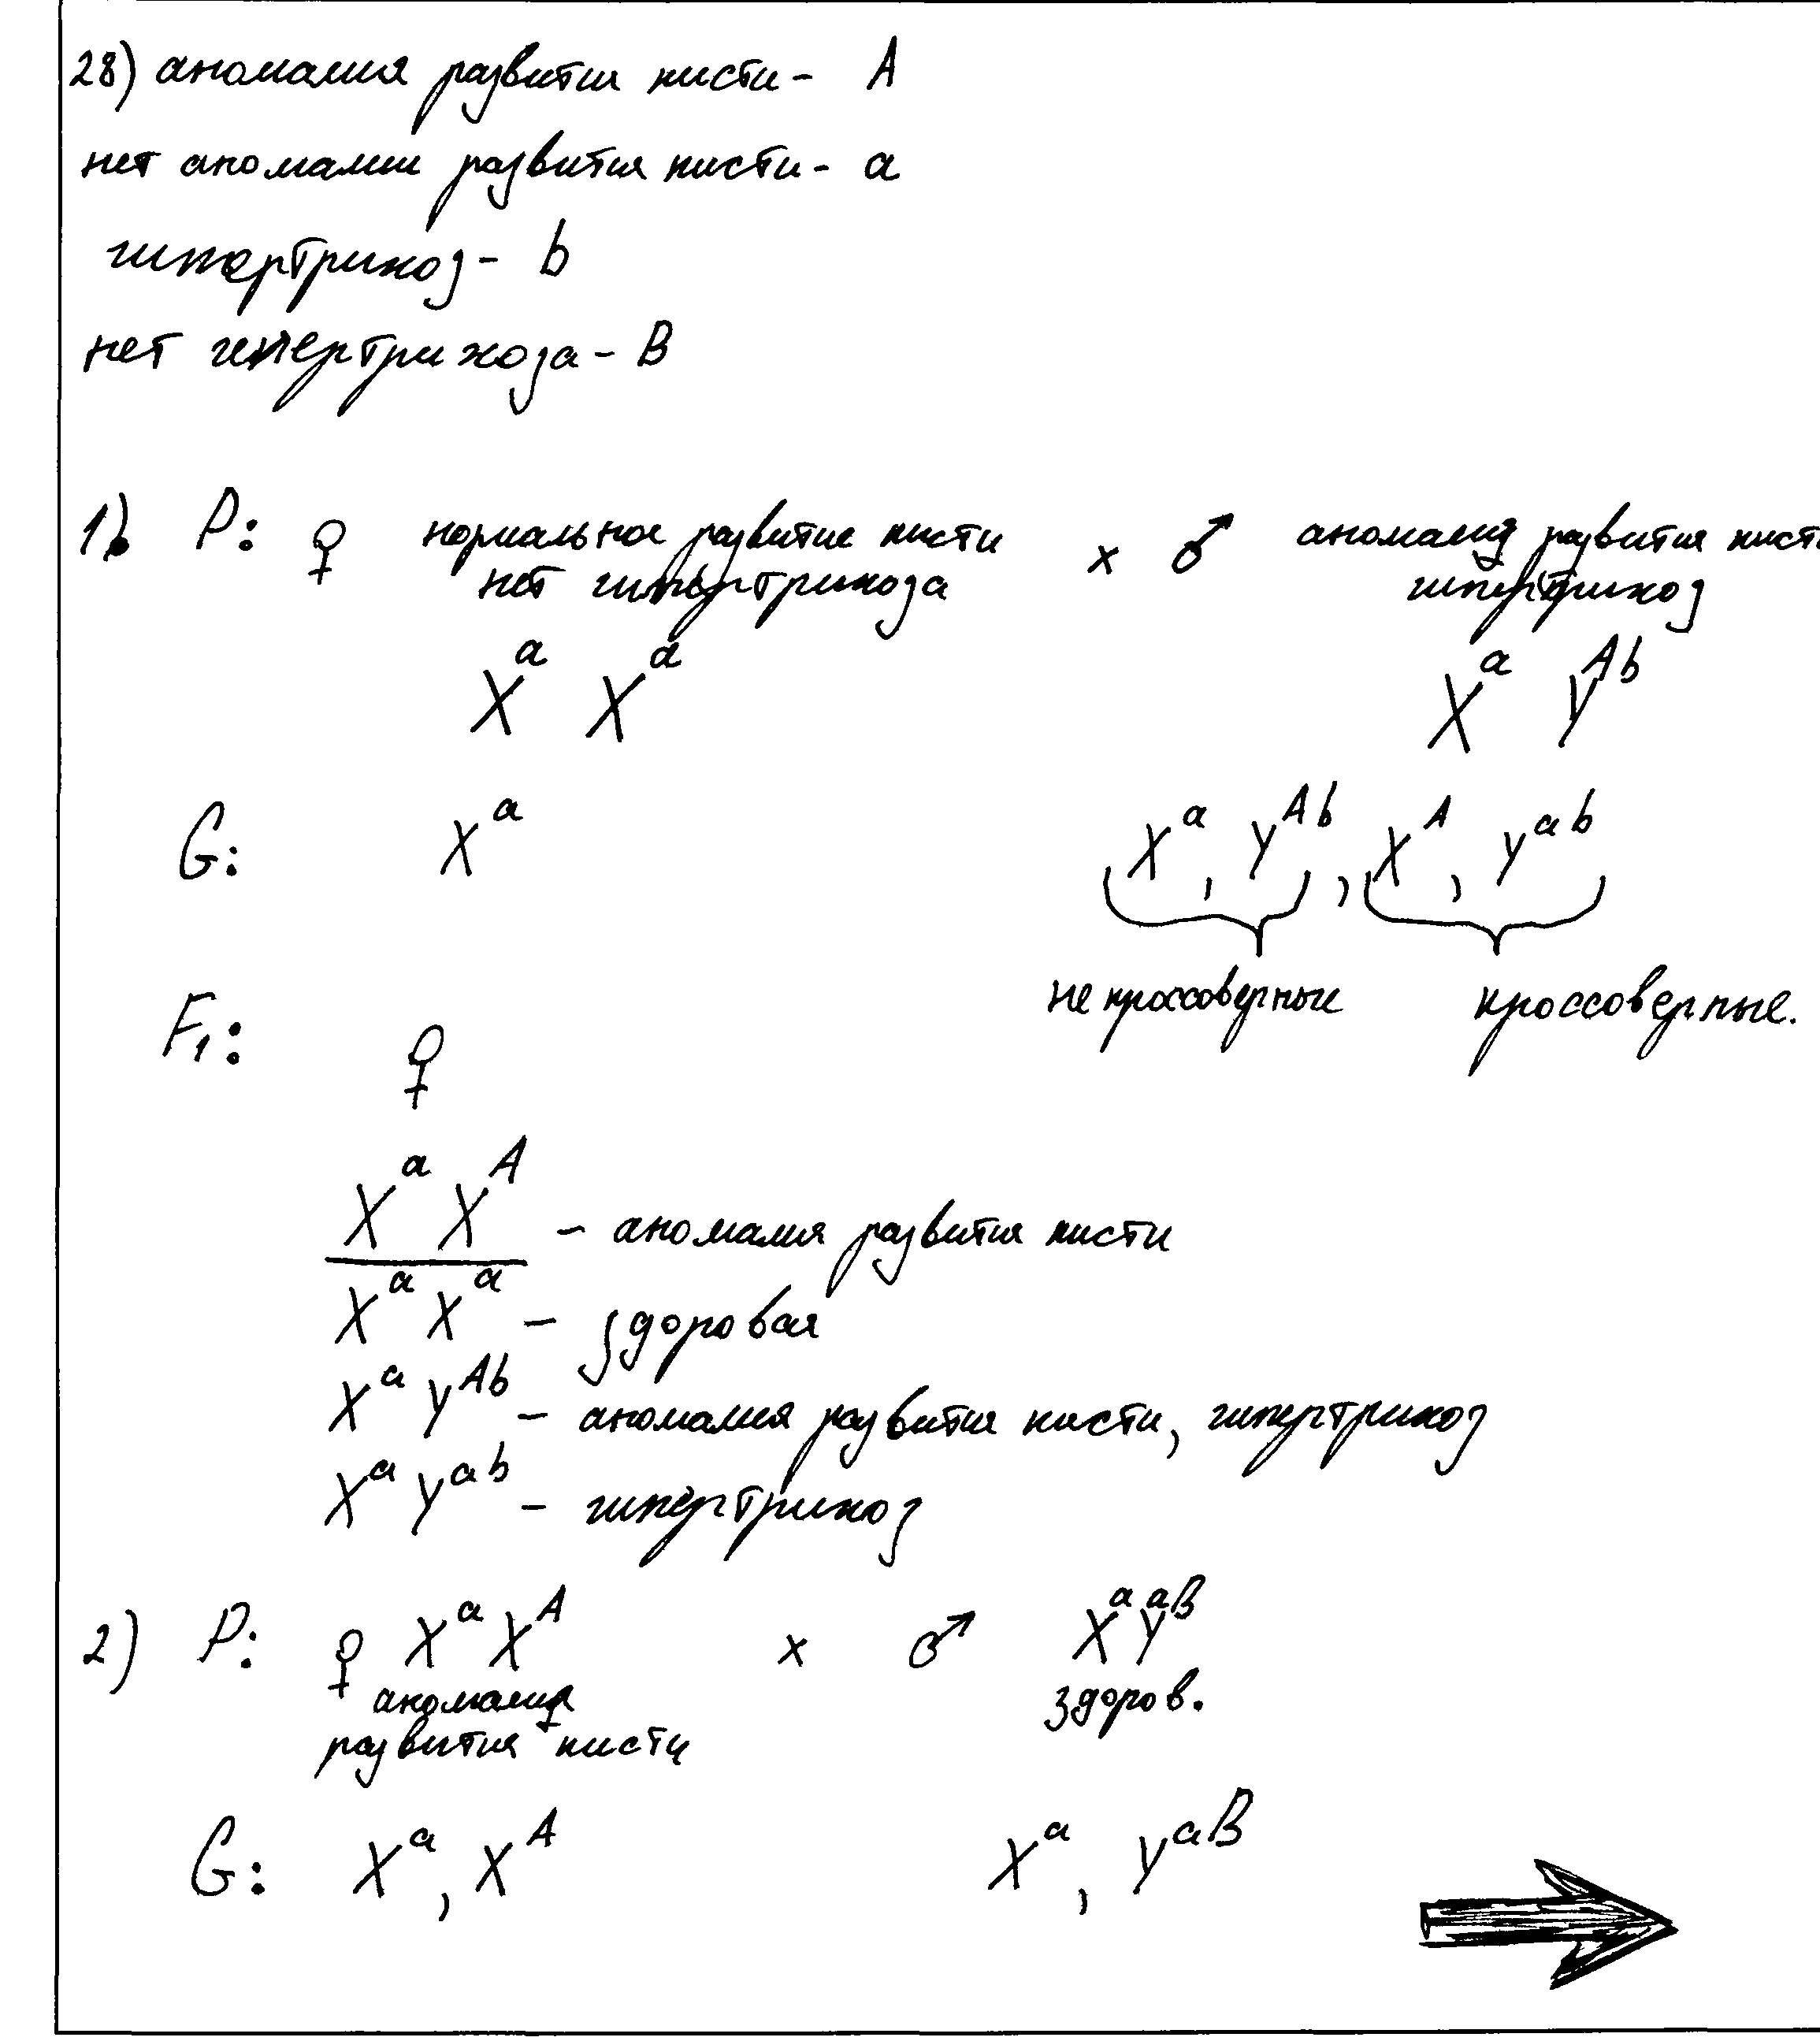 28) аномалия развития кисти - A
нет аномалии развития кисти - a
гипертрихоз - b
нет гипертрихоза - B
1) P: ♀ нормальное развитие кисти x ♂ аномалия развития кисти
нет гипертрихоза гипертрихоз
X^a X^a X^a Y^Ab
G: X^a X^a, Y^Ab, X^A, Y^ab
некроссоверные кроссоверные.
F₁: ♀
X^a X^A - аномалия развития кисти
X^a X^a - здоровая
X^a Y^Ab - аномалия развития кисти, гипертрихоз
X^a Y^ab - гипертрихоз
2) P: ♀ X^a X^A x ♂ X^a Y^aB
аномалия здоров.
развития кисти
G: X^a, X^A X^a, Y^aB